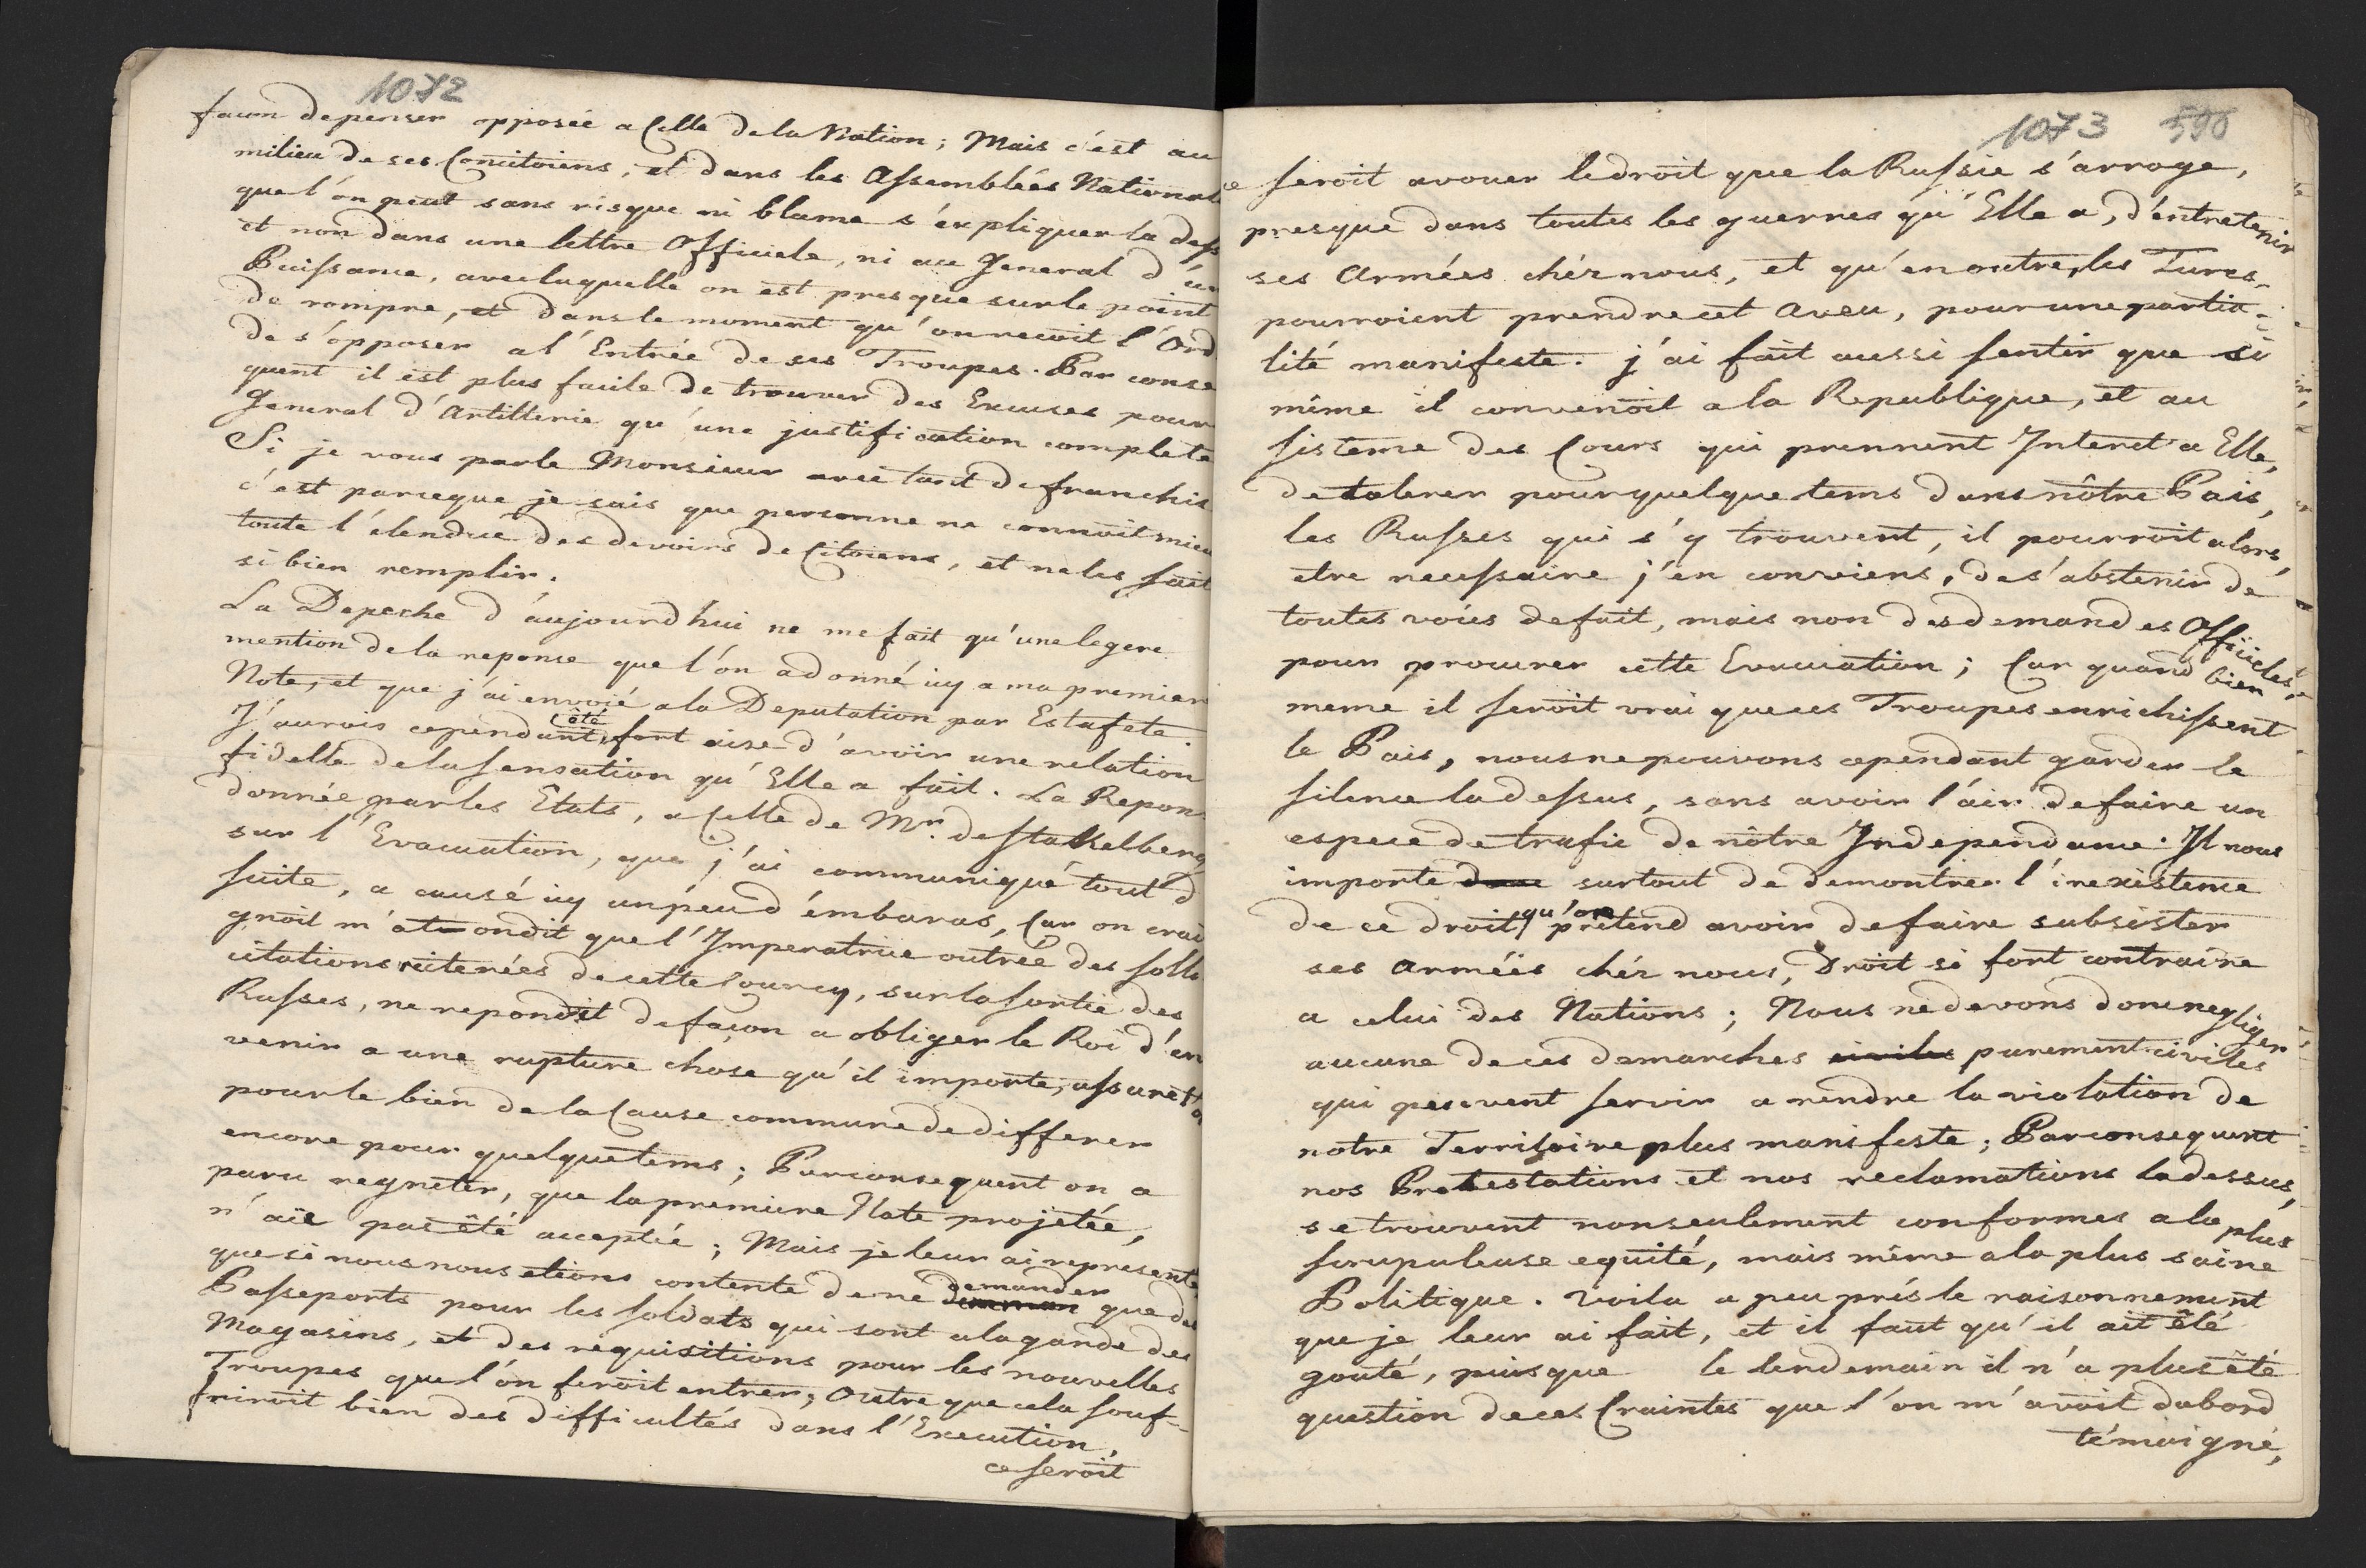 1072
facon de penser opposée a Celle de la Nation; Mais c'ést au
milieu de ses Concitoiens, et dans les Assemblées National
que l'ón peut sans risque ni blame s'expliquer la dess
et non dans une lettre Officiele, ni au General d'un
Puissance, avec laquelle on est presque sur le point
de rompre, et dans le moment qu'on recoit l'Ord
de s'opposer a l'Entrée de ses Troupes. Par conse
quent il est plus facile de trouver des Excuses pour
General d'Artillerie qu'une justification complete
Si je vous parle Monsieur avec tant de franchis
c'est parceque je sais que personne ne connoit mieu
toute l'étendue des devoirs de Citoiens, et ne les sait
si bien remplir.
La Depeche d'aujourdhui ne me fait qu'une legere
mention de la reponse que l'ón a donné icy a ma premier
Note, et que j'ai envoié a la Deputation par Estafete.
J'aurois cependant été fort aise d'avoir une relation
fidelle de la sensation qu'Elle a fait. La Repon
donnée par les Etats, a Celle de Mr. de Stakelberg
sur l'Evacuation, que j'ai communiqué tout d
suite, a causé icy un peu d'émbaras, Car on crai
gnoit m'at-on dit que l'Imperatrice outrée des solli
citations reiterées de cette Cour cy, sur la sortie des
Russes, ne repondit de façon a obliger le Roi d'en
venir a une rupture chose qu'il importe, assure t'o
pour le bien de la Cause commune de differer
encore pour quelque tems; Par consequent on a
paru regreter, que la premiere Note projetée,
n'aïe pas été acceptée; Mais je leur ai represente
que si nous nous etions contente de ne demander que des
Passeports pour les soldats qui sont a la garde des
Magasins, et des requisitions pour les nouvelles
Troupes que l'ón feroit entrer, Outre que cela souf-
friroit bien des difficultés dans l'Execution,
ce seroit
1073 596
ce seroit avouer le droit que la Russie s'arroge,
presque dans toutes les guerres qu'Elle a, d'éntretenir
ses Armées chéz nous, et qu'en outre, les Turcs,
pourroient prendre cet Aveu, pour une partia-
lité manifeste. j'ai fait aussi sentir que si
même il convenoit a la Republique, et au
sisteme des Cours qui prennent Interet a Elle,
de tolerer pour quelque tems dans nôtre Pais,
les Russes qui s'y trouvent, il pourroit alors,
etre necessaire j'en conviens, de s'abstenir de
toutes voïes de fait, mais non des demandes Officieles,
pour procurer cette Evacuation; Car quand bien
meme il seroit vrai que ces Troupes enrichissent
le Pais, nous ne pouvons cependant garder le
silence la dessus, sans avoir l'áir de faire un
espece de trafic de nôtre Independance. Il nous
importe donc surtout de demontrer l'inexistence
de ce droit qu'on prétend avoir de faire subsister
ses Armées chéz nous, Droit si fort contraire
a celui des Nations; Nous ne devons donc negliger
aucune de ces demarches civiles purement civiles
qui peuvent servir a rendre la violation de
notre Territoire plus manifeste; Par consequent
nos Protestations et nos reclamations la dessus,
se trouvent non seulement conformes a la plus
scrupuleuse equité, mais même a la plus saine
Politique. Voila a peu prés le raisonnement
que je leur ai fait, et il faut qu'il ait été
gouté, puisque le lendemain il n'a plus été
question de ces Craintes que l'ón m'avoit dabord
témoigné,